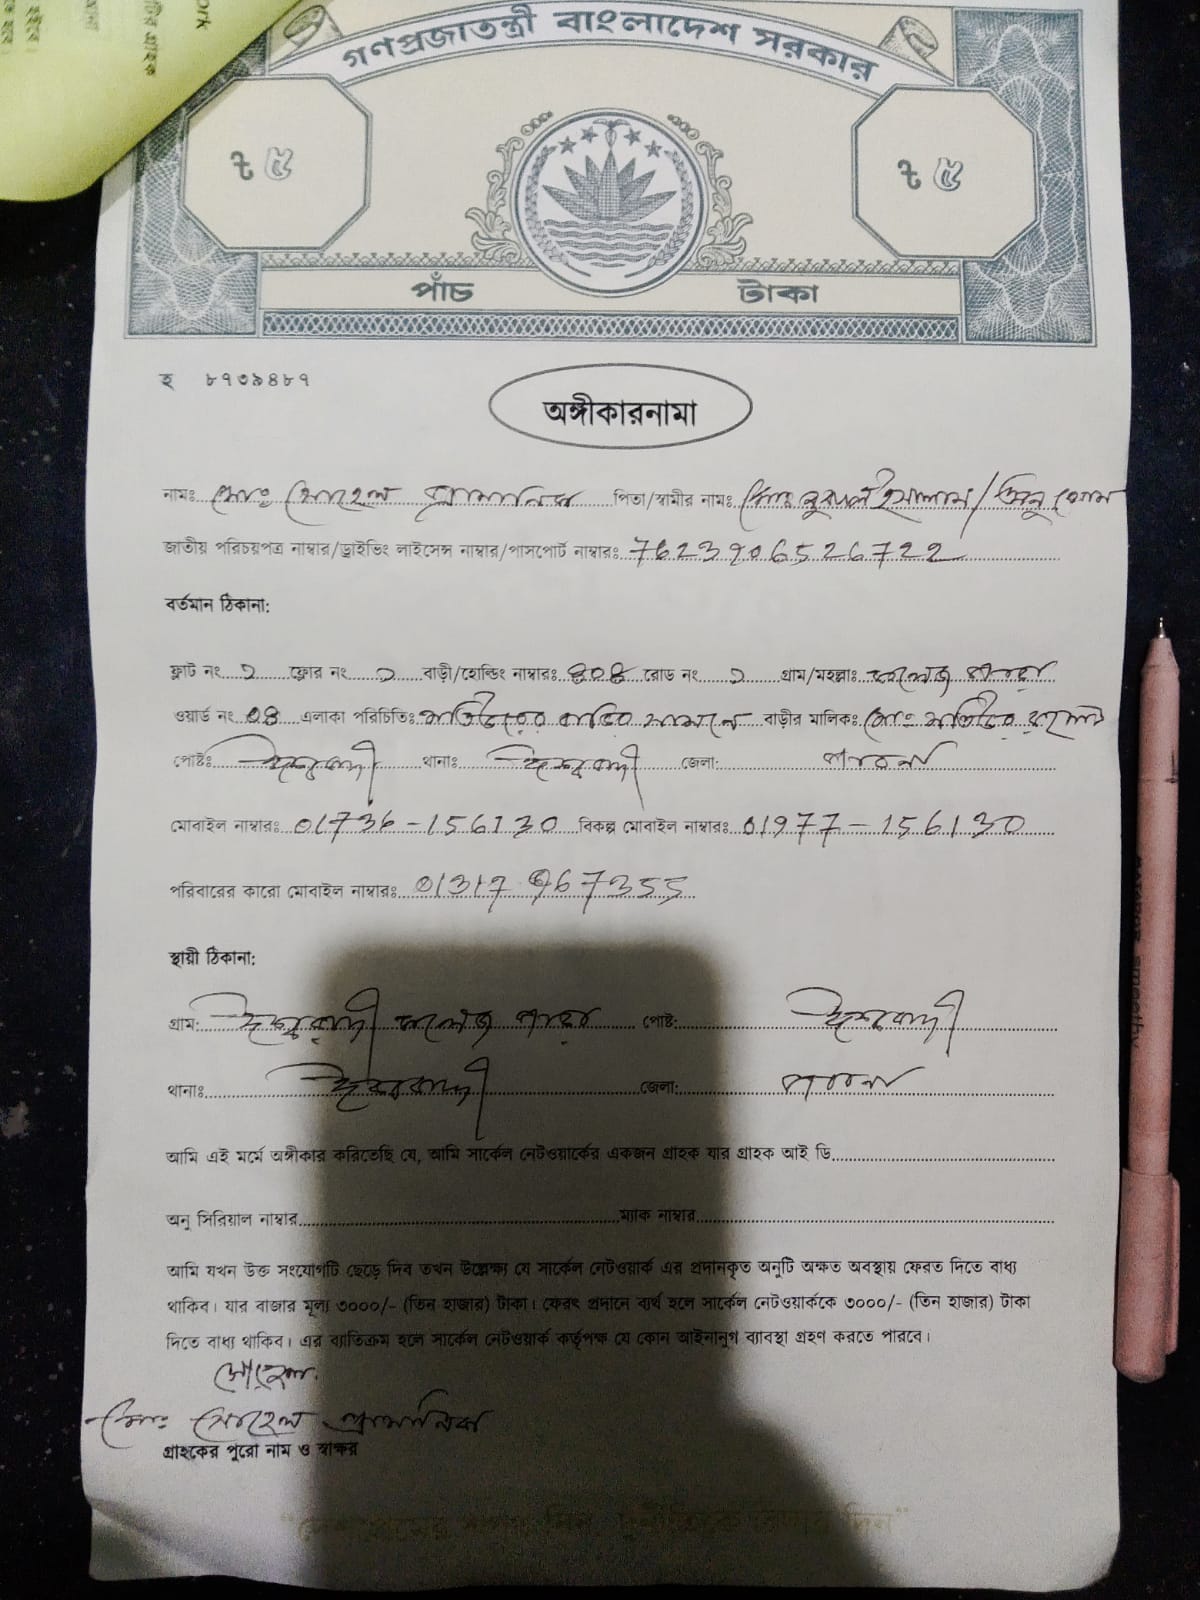 গণপ্রজাতন্ত্রী বাংলাদেশ সরকার
৳ ৫ ৳ ৫
পাঁচ টাকা
হ ৮৭৩৯৪৮৭
অঙ্গীকারনামা
নামঃ মোঃ সোহেল প্রামানিক পিতা/স্বামীর নামঃ মোঃ নুরুল ইসলাম/
জাতীয় পরিচয়পত্র নাম্বার/ড্রাইভিং লাইসেন্স নাম্বার/পাসপোর্ট নাম্বারঃ 7623906526722
বর্তমান ঠিকানা:
ফ্লাট নং ১ ফ্লোর নং ১ বাড়ী/হোল্ডিং নাম্বারঃ ৪০৪ রোড নং ১ গ্রাম/মহল্লাঃ কলেজ পাড়া
ওয়ার্ড নং ০৪ এলাকা পরিচিতিঃ বাড়ির সামনে বাড়ীর মালিকঃ মোঃ
পোষ্টঃ ঈশ্বরদী থানাঃ ঈশ্বরদী জেলা: পাবনা
মোবাইল নাম্বারঃ 01736-156130 বিকল্প মোবাইল নাম্বারঃ 01977-156130
পরিবারের কারো মোবাইল নাম্বারঃ 01317 967355
স্থায়ী ঠিকানা:
গ্রাম: ঈশ্বরদী কলেজ পাড়া পোষ্ট: ঈশ্বরদী
থানাঃ ঈশ্বরদী জেলা: পাবনা
আমি এই মর্মে অঙ্গীকার করিতেছি যে, আমি সার্কেল নেটওয়ার্কের একজন গ্রাহক যার গ্রাহক আই ডি
অনু সিরিয়াল নাম্বার ম্যাক নাম্বার
আমি যখন উক্ত সংযোগটি ছেড়ে দিব তখন উল্লেক্ষ্য যে সার্কেল নেটওয়ার্ক এর প্রদানকৃত অনুটি অক্ষত অবস্থায় ফেরত দিতে বাধ্য
থাকিব। যার বাজার মূল্য ৩০০০/- (তিন হাজার) টাকা। ফেরৎ প্রদানে ব্যর্থ হলে সার্কেল নেটওয়ার্ককে ৩০০০/- (তিন হাজার) টাকা
দিতে বাধ্য থাকিব। এর ব্যাতিক্রম হলে সার্কেল নেটওয়ার্ক কর্তৃপক্ষ যে কোন আইনানুগ ব্যাবস্থা গ্রহণ করতে পারবে।
সোহেল
মোঃ সোহেল প্রামানিক
গ্রাহকের পুরো নাম ও স্বাক্ষর